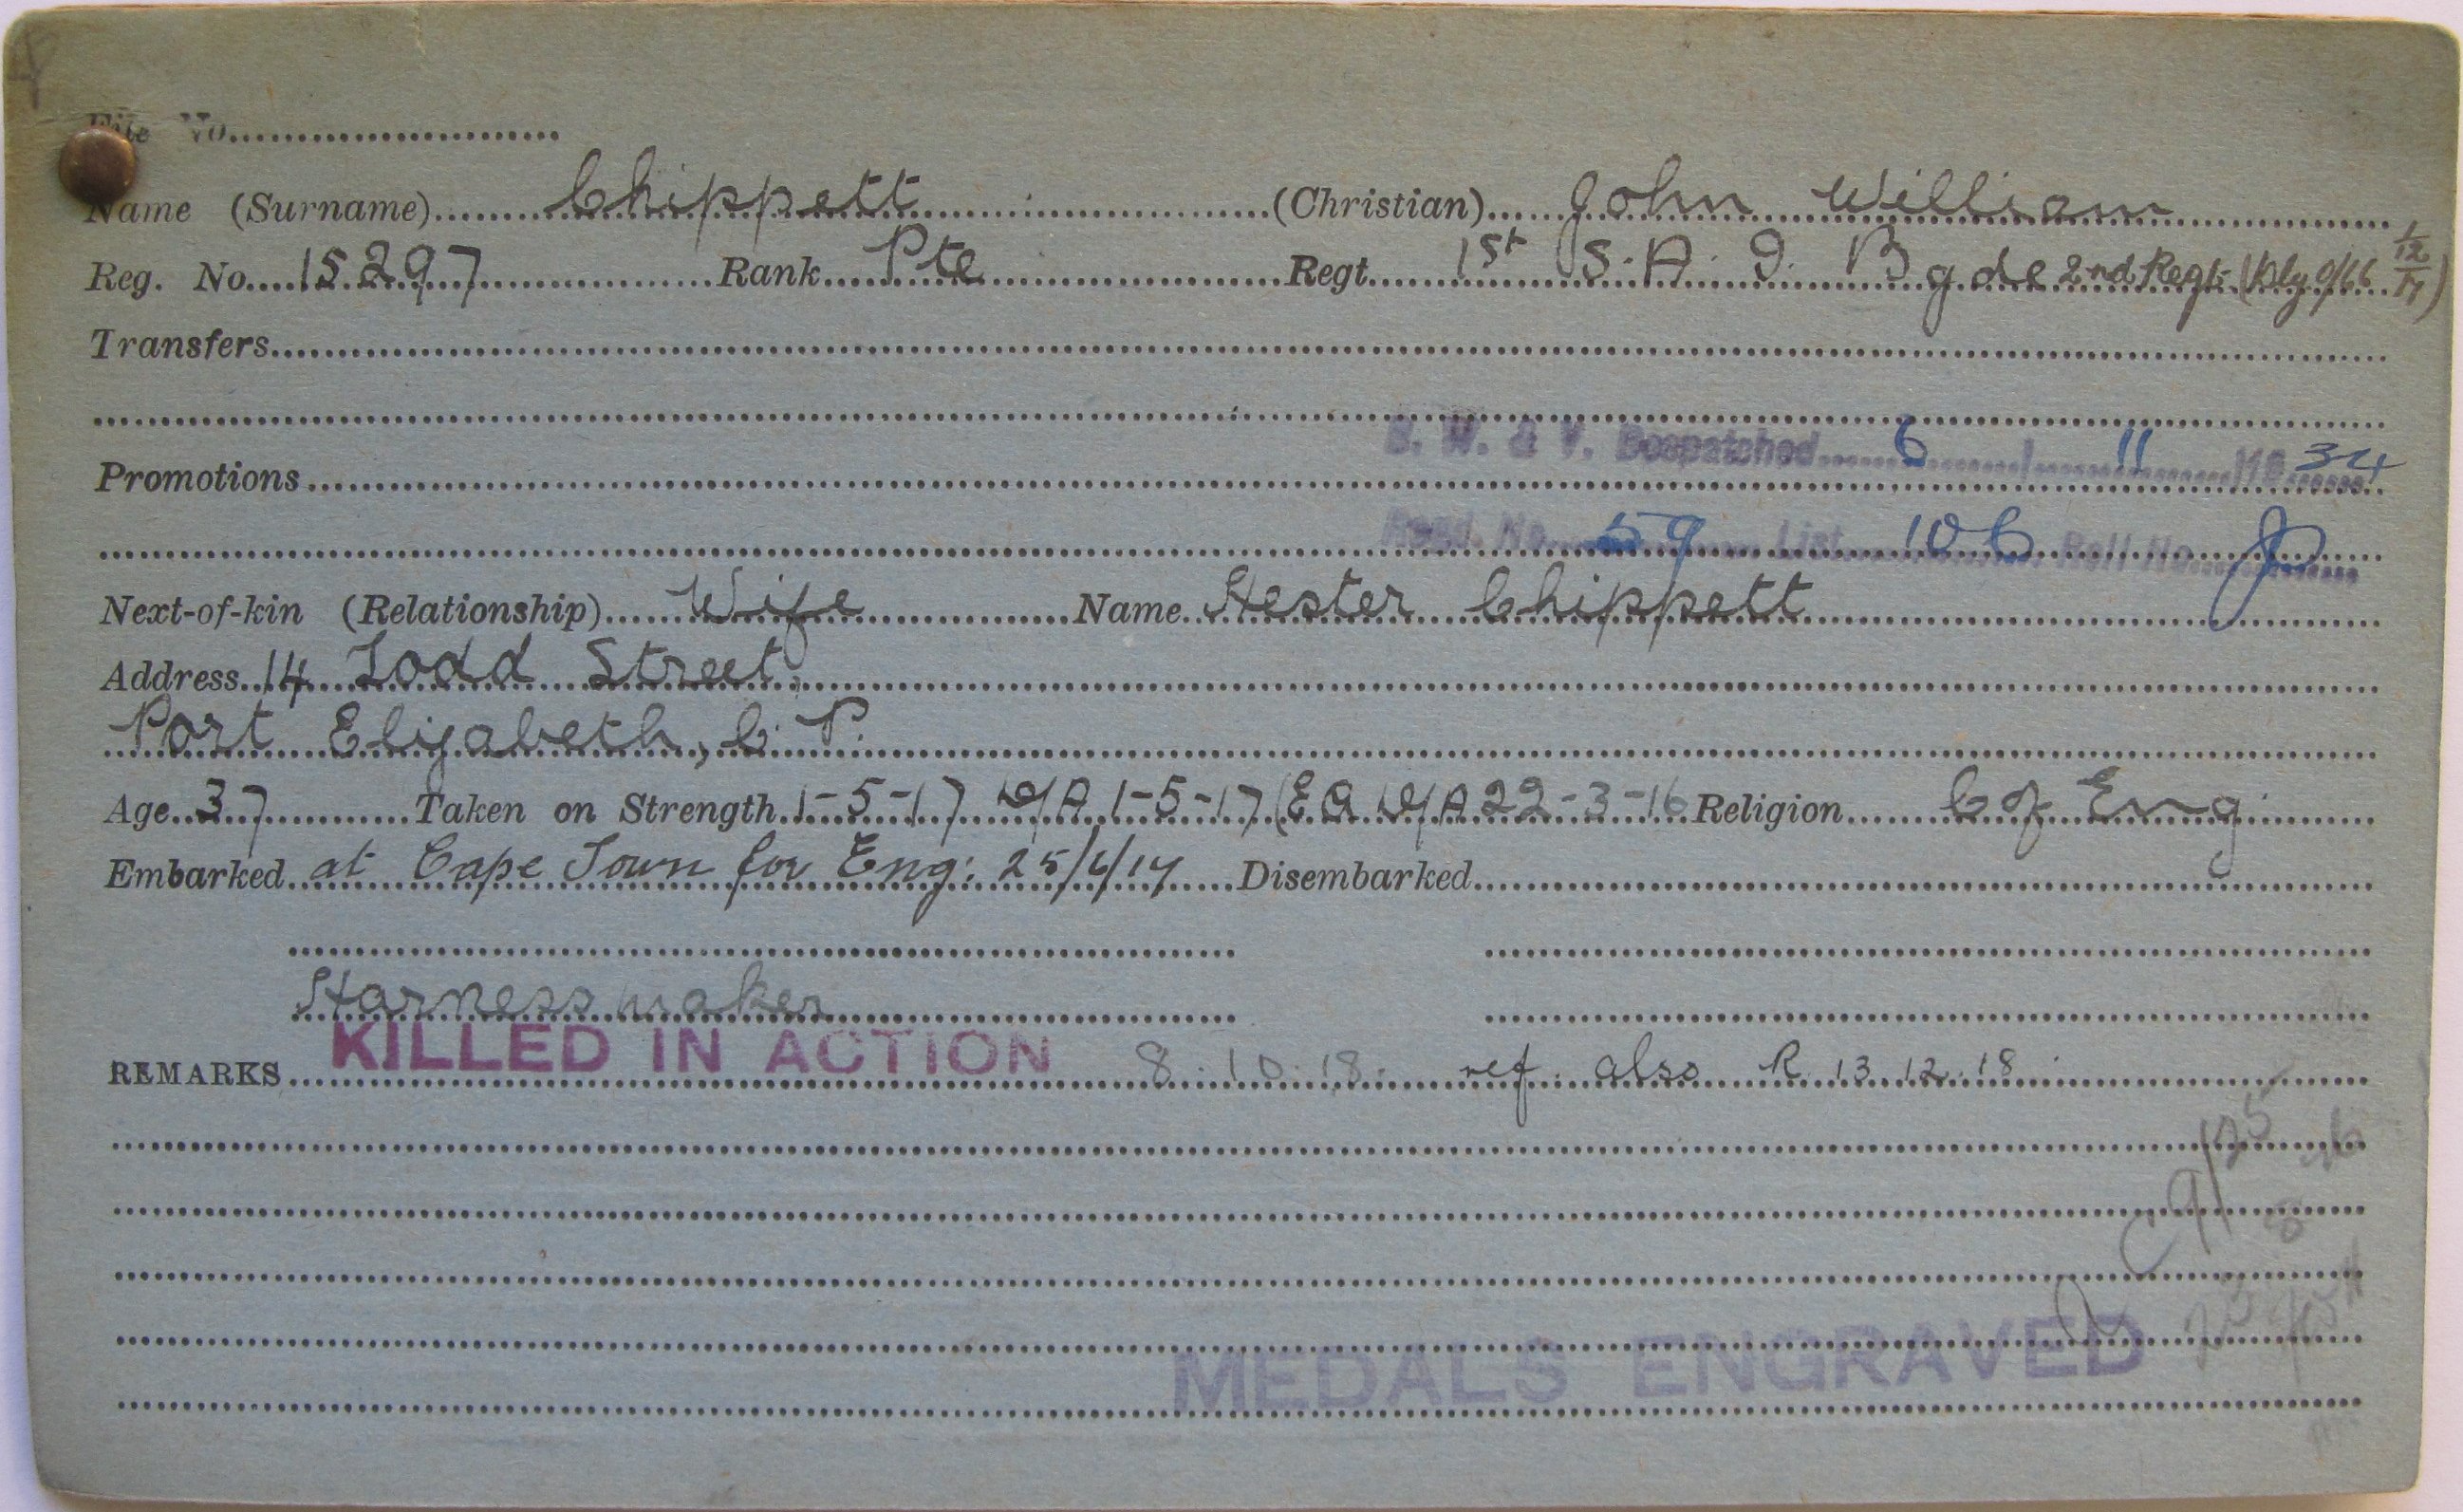 File No.
Name (Surname) Chippett (Christian) John William
Reg. No. 15297 Rank Pte Regt. 1st S.A.I. Bgde 2nd Regt. (Dly O/66 1/12/17)
Transfers
B. W. & V. Despatched 6 / 11 /19 34
Promotions
Regd. No. 59 List 106 Roll No.
Next-of-kin (Relationship) Wife Name Hester Chippett
Address 14 Todd Street,
Port Elizabeth, C.P.
Age 37 Taken on Strength 1-5-17 D/A 1-5-17 (E.A. D/A 22-3-16 Religion C of Eng.
Embarked at Cape Town for Eng: 25/6/17 Disembarked
Harness maker
REMARKS KILLED IN ACTION 8.10.18. ref. also R 13.12.18.
C9/125
MEDALS ENGRAVED